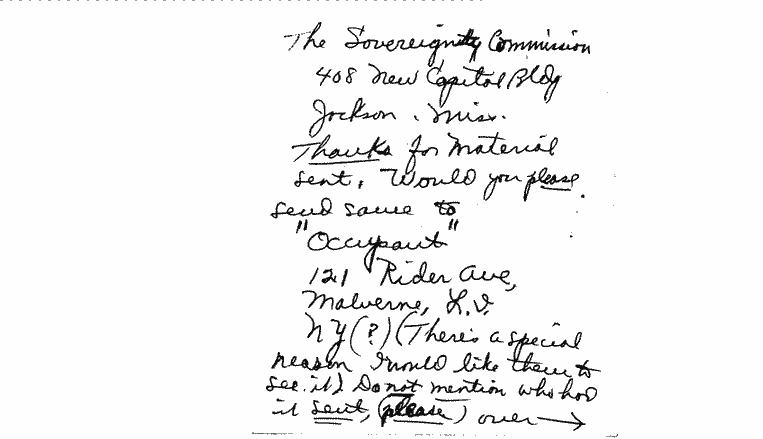 The Sovereignty Commission
408 New Capitol Bldg
Jackson, Miss.
Thanks for Material
sent. Would you please
send same to
"Occupant"
121 Rider Ave,
Malverne, L.I.
NY (?) (There's a special
reason I would like them to
see it). Do not mention who had
it sent, (please) over →